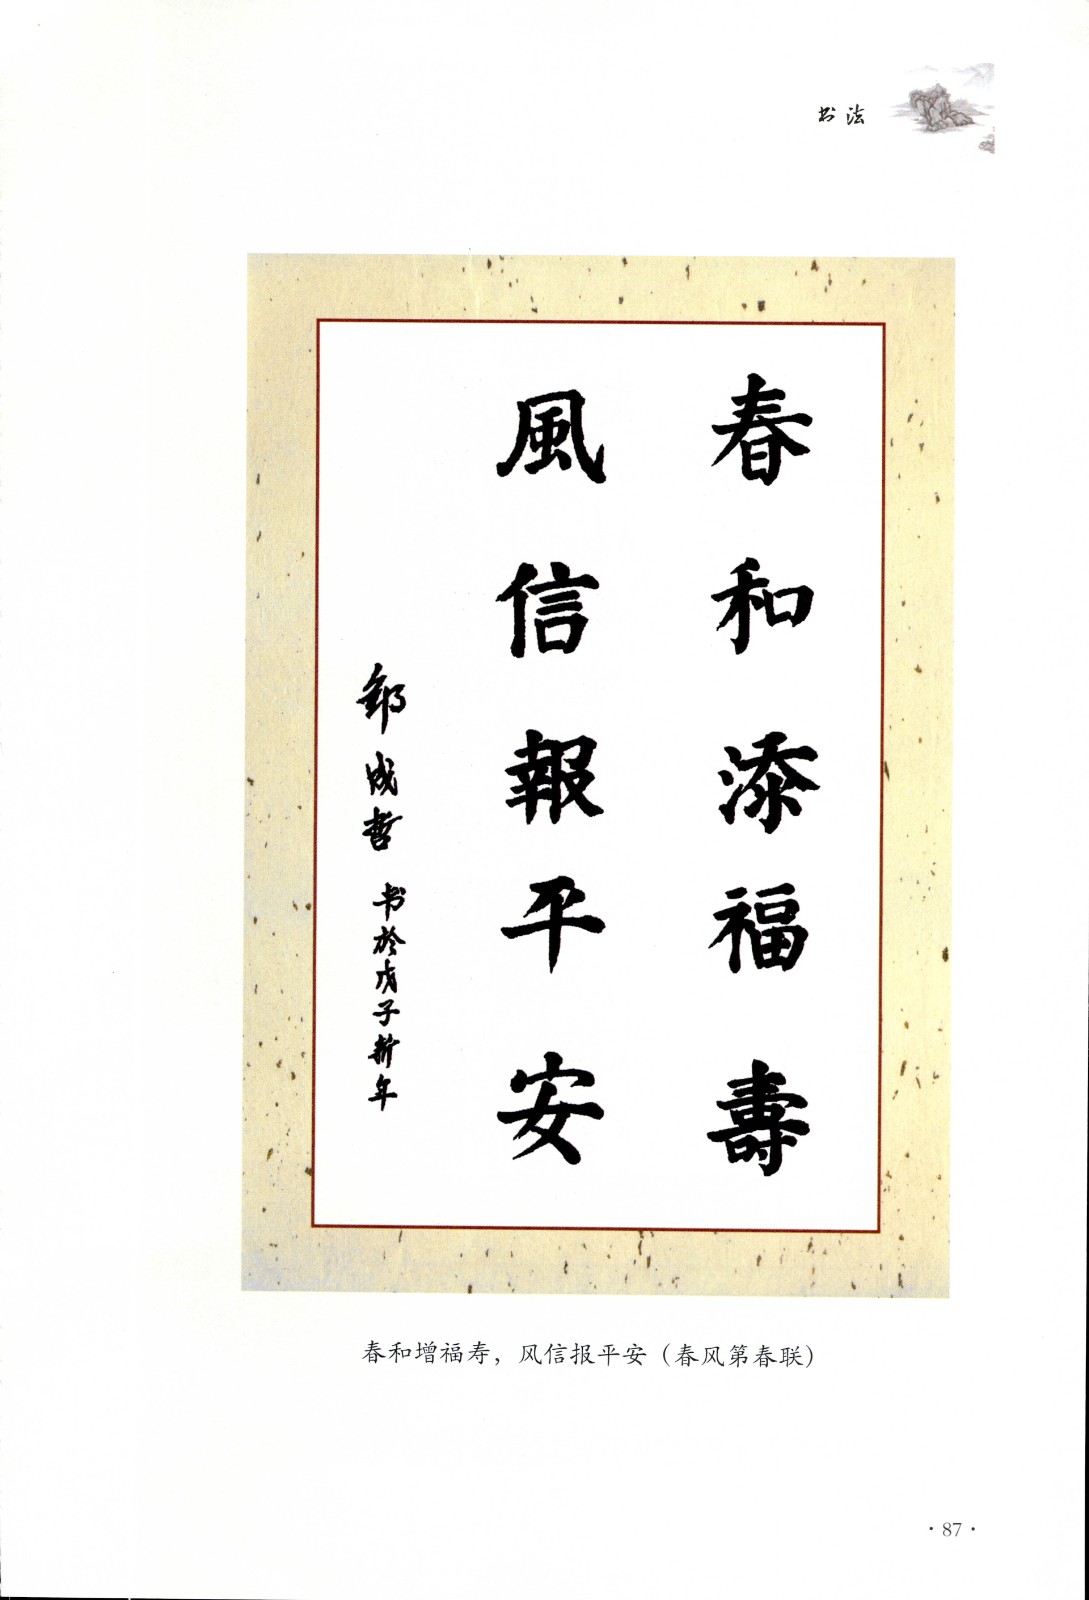 书法
春和添福壽
風信報平安
邹成哲 书於戊子新年
春和增福寿，风信报平安（春风第春联）
·87·